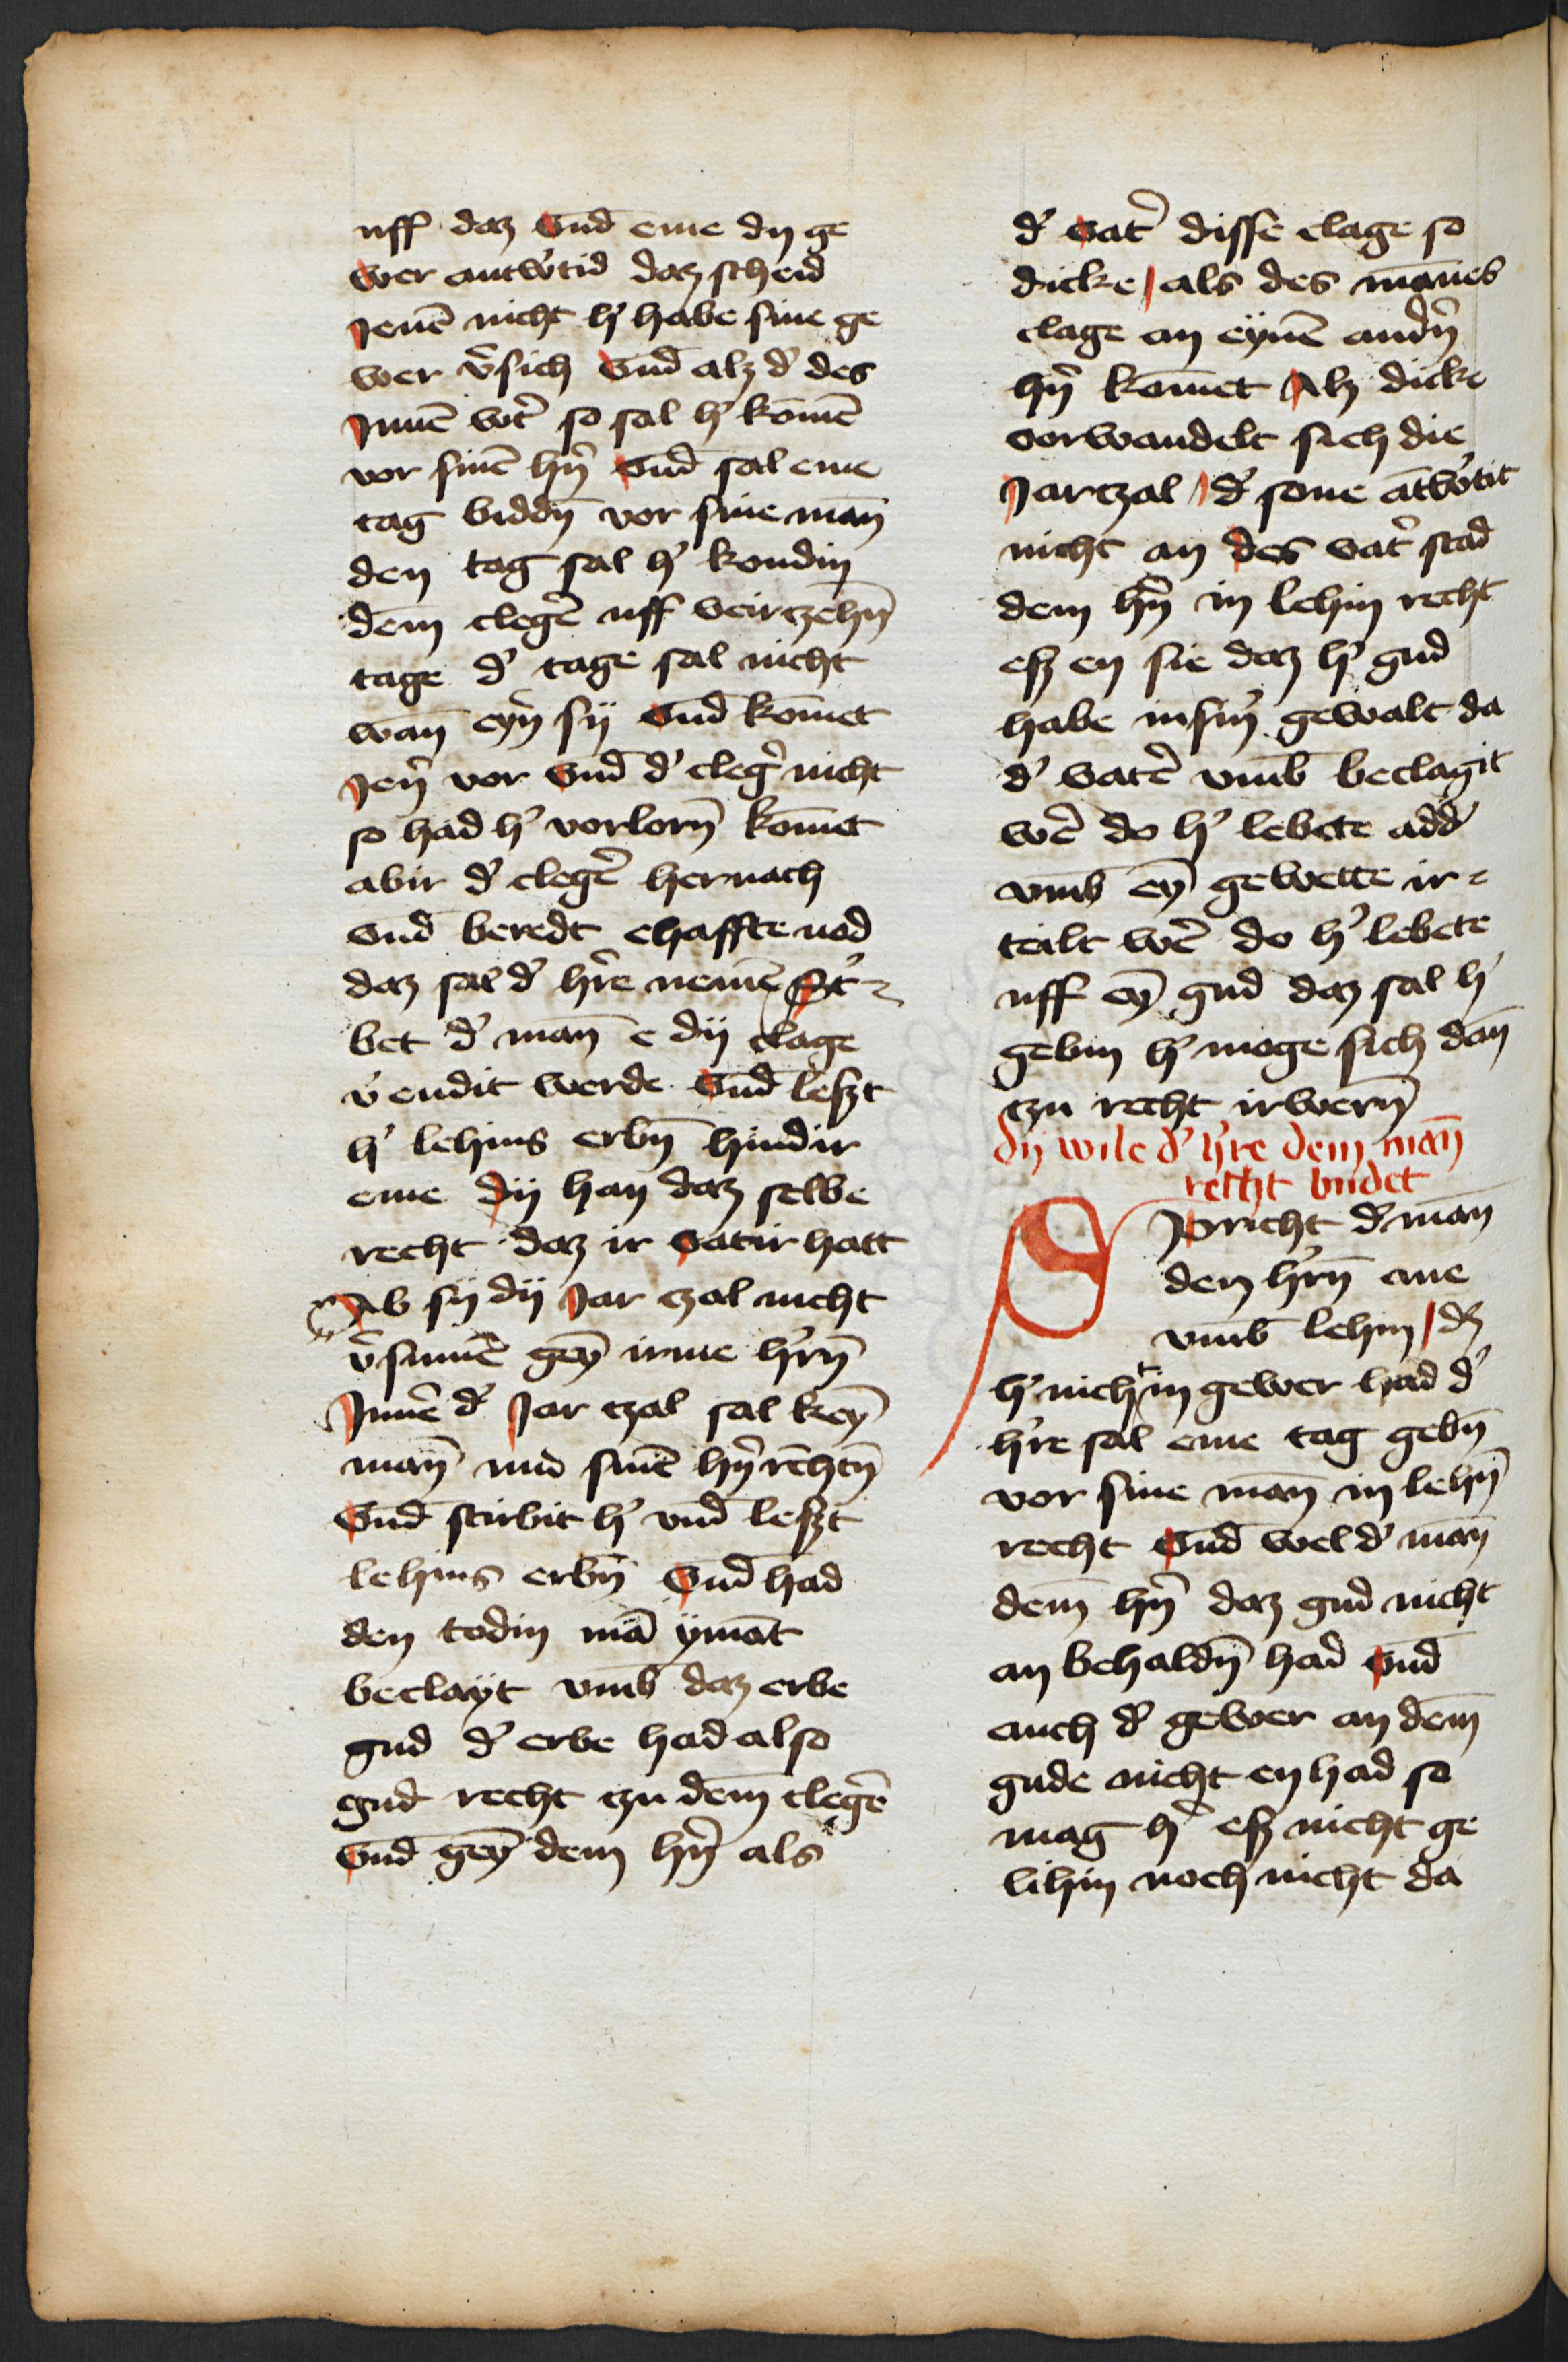 uff daz vnd̄ eme dy ge
wer antw̓tid daz scheid
Jenē nicht h̓ habe sine ge
wer v̓sich vnd̄ alz d̓ des
Jnnē wt̓ so sal h̓ komē
vor sinē hn̄̓ vnd̄ sal eme
tag biddn̄ vor sine man̄
den tag sal h̓ kondin
dem̄ cleg̓e uff veirczehn̄
tage d̓ tage sal nicht
wan̄ eyn̓ sy vnd̄ kom̄et
Jen̓ vor vnd̄ d̓ cleg̓ nicht
so had h̓ vorlorn̄ kom̄et
abir d̓ cleg̓e hernach
vnd̄ beredt ehaffte nod
daz sal d̓ hr̓e nemē St̓-
bet d̓ man̄ e dy clage
v̓endit werde vnd̄ leszt
h̓ lehins erbn̄ hindir
eme dy han daz selbe
recht daz ir vatir hatt
Ab sy dy Jar czal nicht
v̓sumē geȳ irme hr̓n̄
Jnnē d̓ Jar czal sal keȳ
man̄ mid sinē hn̄̓ rechtn̄
vnd̄ stirbit h̓ vnd̄ leszt
lehins erbn̄ vnd̄ had
den todin mā ymāt
beclayt vmb̄ daz erbe
gud d̓ erbe had also
gud recht czu dem̄ cleg̓e
vnd̄ geȳ dem hn̄̓ als
d̓ vat̓ disse clage so
dicke / als des man̄es
clage an eynē andn̄̓
hn̄̓ kom̄et Alz dicke
vorwandelt sich die
Jarczal / d̓ sone ātw̓tit
nicht an des vat̓ stad
dem hn̄̓ in lehin recht
esz en sie daz h̓ gud
habe insin̓ gewalt da
d̓ vat̓e vmb̄ beclagit
wē do h̓ lebete add̓
vmb̄ eȳ gewette ir-
teilt wē do h̓ lebete
uff eȳ gud daz sal h̓
gebin h̓ moge sich dan̄
czu recht irwern̄
dy wile d̓ h̓re dem man̄
recht budet
Spricht d̓ man̄
den hr̓n̄ ane
vmb̄ lehin / dz
h̓ nicht in gewer had d̓
hr̓e sal eme tag gebn̄
vor sine man̄ in lehn̄
recht vnd̄ wel d̓ man̄
dem̄ hn̄̓ daz gud nicht
an behaldn̄ had vnd̄
auch d̓ gewer an dem̄
gude nicht en had so
mag h̓ esz nicht ge
lihin noch nicht da